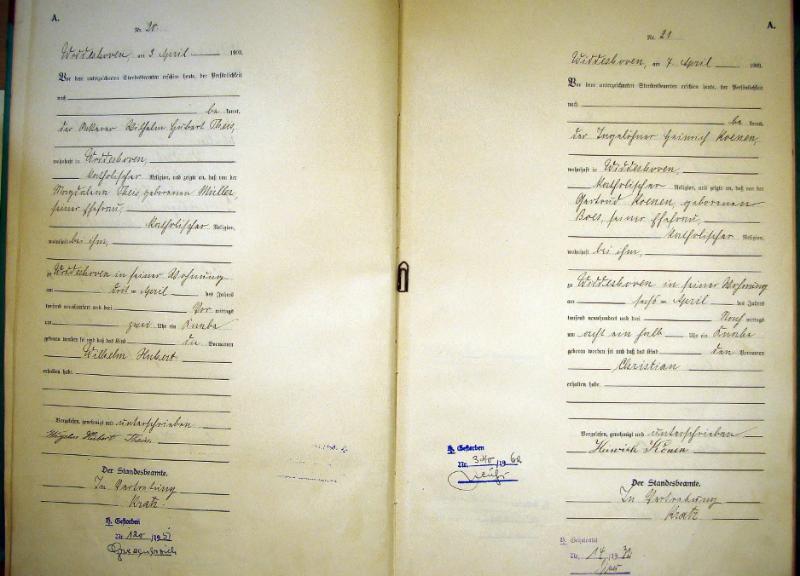 A.
Nr. 20
Widdeshoven, am 3 April 1903.
Vor dem unterzeichneten Standesbeamten erschien heute, der Persönlichkeit
nach
be kannt,
der Ackerer Wilhelm Hubert Theis,
wohnhaft in Widdeshoven,
katholischer Religion, und zeigte an, daß von der
Magdalena Theis, geborenen Müller,
seiner Ehefrau,
katholischer Religion,
wohnhaft bei ihm,
zu Widdeshoven in seiner Wohnung
am April des Jahres
tausend neunhundert und drei Vor mittags
um zwei Uhr ein Knabe
geboren worden sei und daß das Kind den Vornamen
Wilhelm Hubert
erhalten habe.
Vorgelesen, genehmigt und unterschrieben
Hubert Theis
Der Standesbeamte.
In Vertretung
Kratz
H. Gestorben
Nr. 120 /195
A.
Nr. 21
Widdeshoven, am 7 April 1903.
Vor dem unterzeichneten Standesbeamten erschien heute, der Persönlichkeit
nach
be kannt,
der Tagelöhner Heinrich Koenen,
wohnhaft in Widdeshoven,
katholischer Religion, und zeigte an, daß von der
Gertrud Koenen, geborenen
Boes, seiner Ehefrau,
katholischer Religion,
wohnhaft bei ihm,
zu Widdeshoven in seiner Wohnung
am sechs April des Jahres
tausend neunhundert und drei Nach mittags
um acht ein halb Uhr ein Knabe
geboren worden sei und daß das Kind den Vornamen
Christian
erhalten habe.
Vorgelesen, genehmigt und unterschrieben
Heinrich Könen
Der Standesbeamte.
In Vertretung
Kratz
H. Gestorben
Nr. 340 /1962
Neuß
H.
Nr. 14